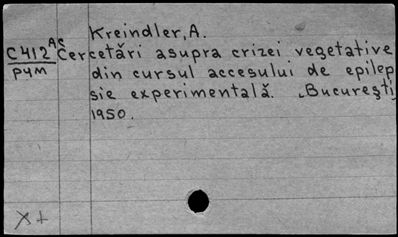 Kreindler, A.
C412 Ac Cercetări asupra crizei vegetative
P4M din cursul accesului de epilep
sie experimentală. „București,
1950.
X+